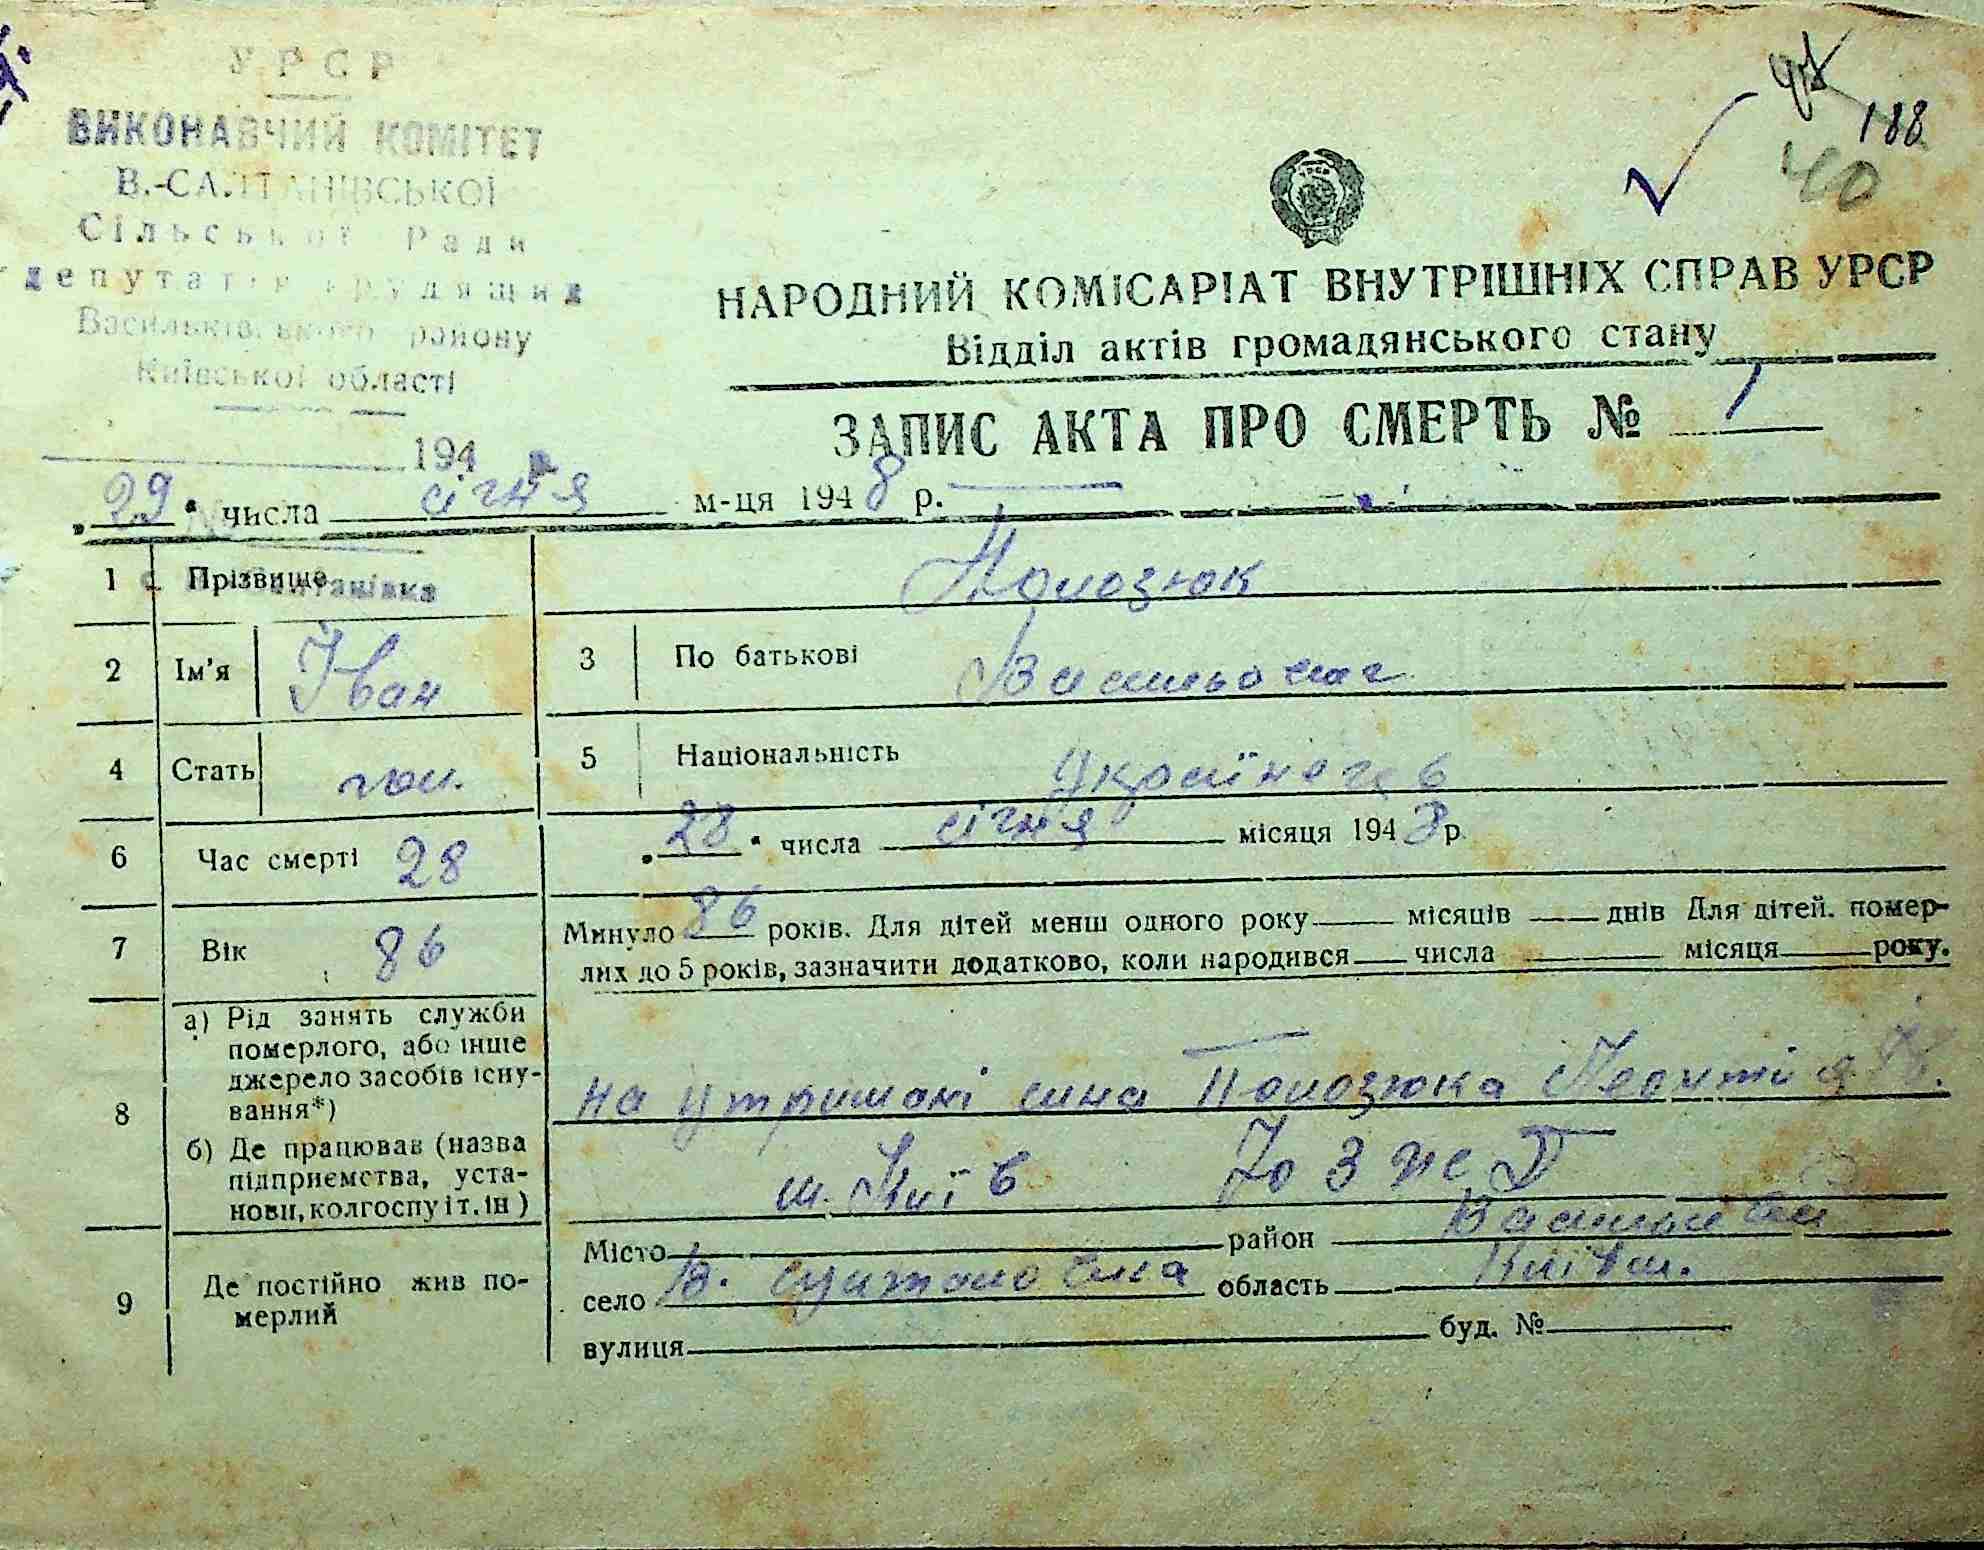 УРСР
ВИКОНАВЧИЙ КОМІТЕТ
В.-САЛТАНІВСЬКОЇ
Сільської Ради
депутатів трудящих
Васильківського району
Київської області
194
188
40
НАРОДНИЙ КОМІСАРІАТ ВНУТРІШНІХ СПРАВ УРСР
Відділ актів громадянського стану
ЗАПИС АКТА ПРО СМЕРТЬ № 1
„29“ числа січня м-ця 1948 р.
1 Прізвище Полозюк
2 Ім'я Іван 3 По батькові Васильович
4 Стать чол. 5 Національність Українець
6 Час смерті 28 „28“ числа січня місяця 1948 р.
7 Вік 86 Минуло 86 років. Для дітей менш одного року місяців днів Для дітей. помер-
лих до 5 років, зазначити додатково, коли народився числа місяця року.
8 а) Рід занять служби
померлого, або інше
джерело засобів існу-
вання*)
на утримані сина Полозюка Леонтія
б) Де працював (назва
підприємства, уста-
нови, колгоспу і т. ін)
м. Київ
9 Де постійно жив по-
мерлий
Місто район Васильків
село В. Султанівка область Київ
вулиця буд. №